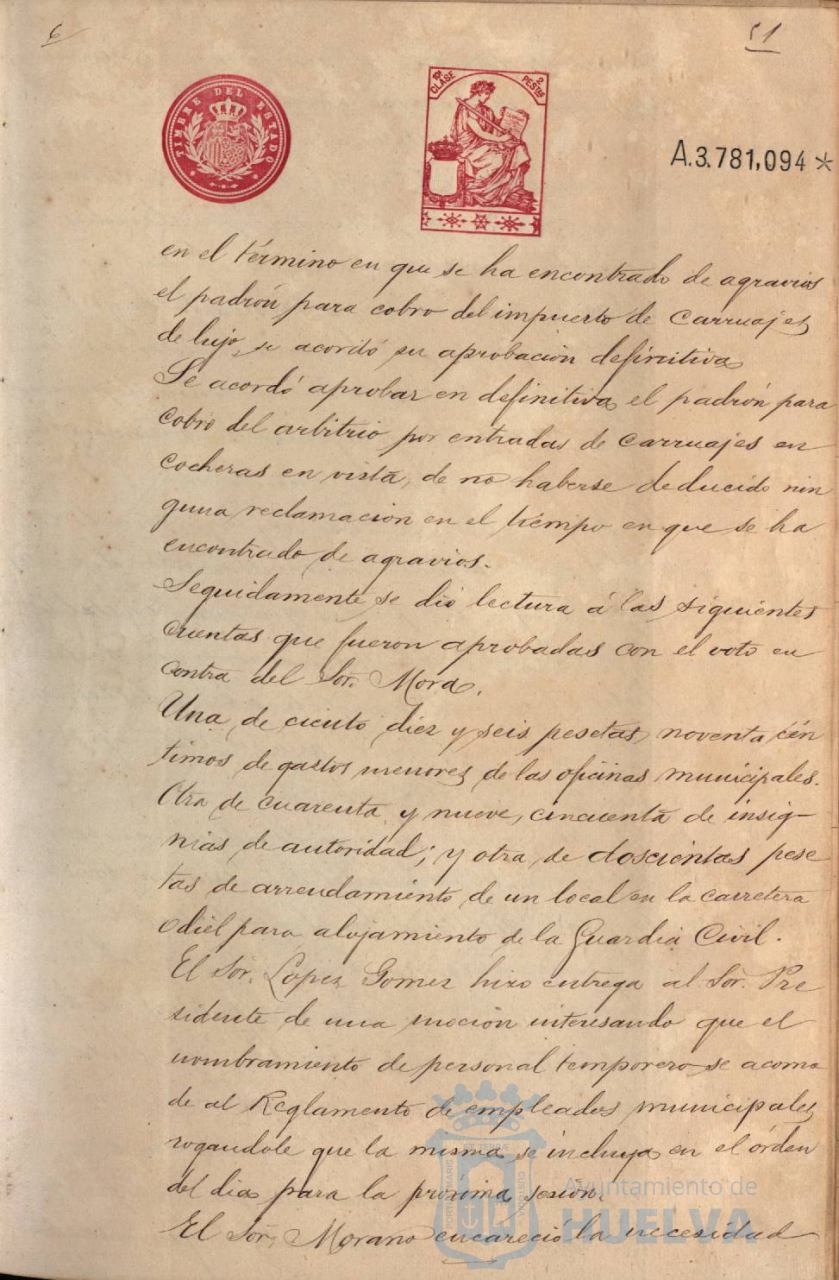 6
51
TIMBRE DEL ESTADO
10ª CLASE
2 PESTAS
A.3.781,094*
en el término en que se ha encontrado de agravios
el padrón para cobro del impuerto de Carruajes
de lujo, se acordó su aprobación definitiva
Se acordó aprobar en definitiva el padrón para
cobro del arbitrio por entradas de Carruajes en
cocheras en vista, de no haberse deducido nin
guna reclamacion en el tiempo en que se ha
encontrado de agravios.
Seguidamente se dió lectura á las siguientes
cuentas que fueron aprobadas con el voto en
contra del Sor. Mora.
Una de ciento diez y seis pesetas noventa cén
timos de gastos menores de las oficinas municipales.
Otra de cuarenta y nueve, cincuenta de insig-
nias de autoridad; y otra de doscientas pese
tas de arrendamiento de un local en la carretera
Odiel para alojamiento de la Guardia Civil.
El Sor. Lopez Gomez hizo entrega al Sor. Pre
sidente de una mocion interesando que el
nombramiento de personal temporero se acomo
de al Reglamento de empleados municipales
rogandole que la misma se incluya en el órden
del dia para la proxima sesion.
El Sor. Morano encareció la necesidad
Ayuntamiento de
HUELVA